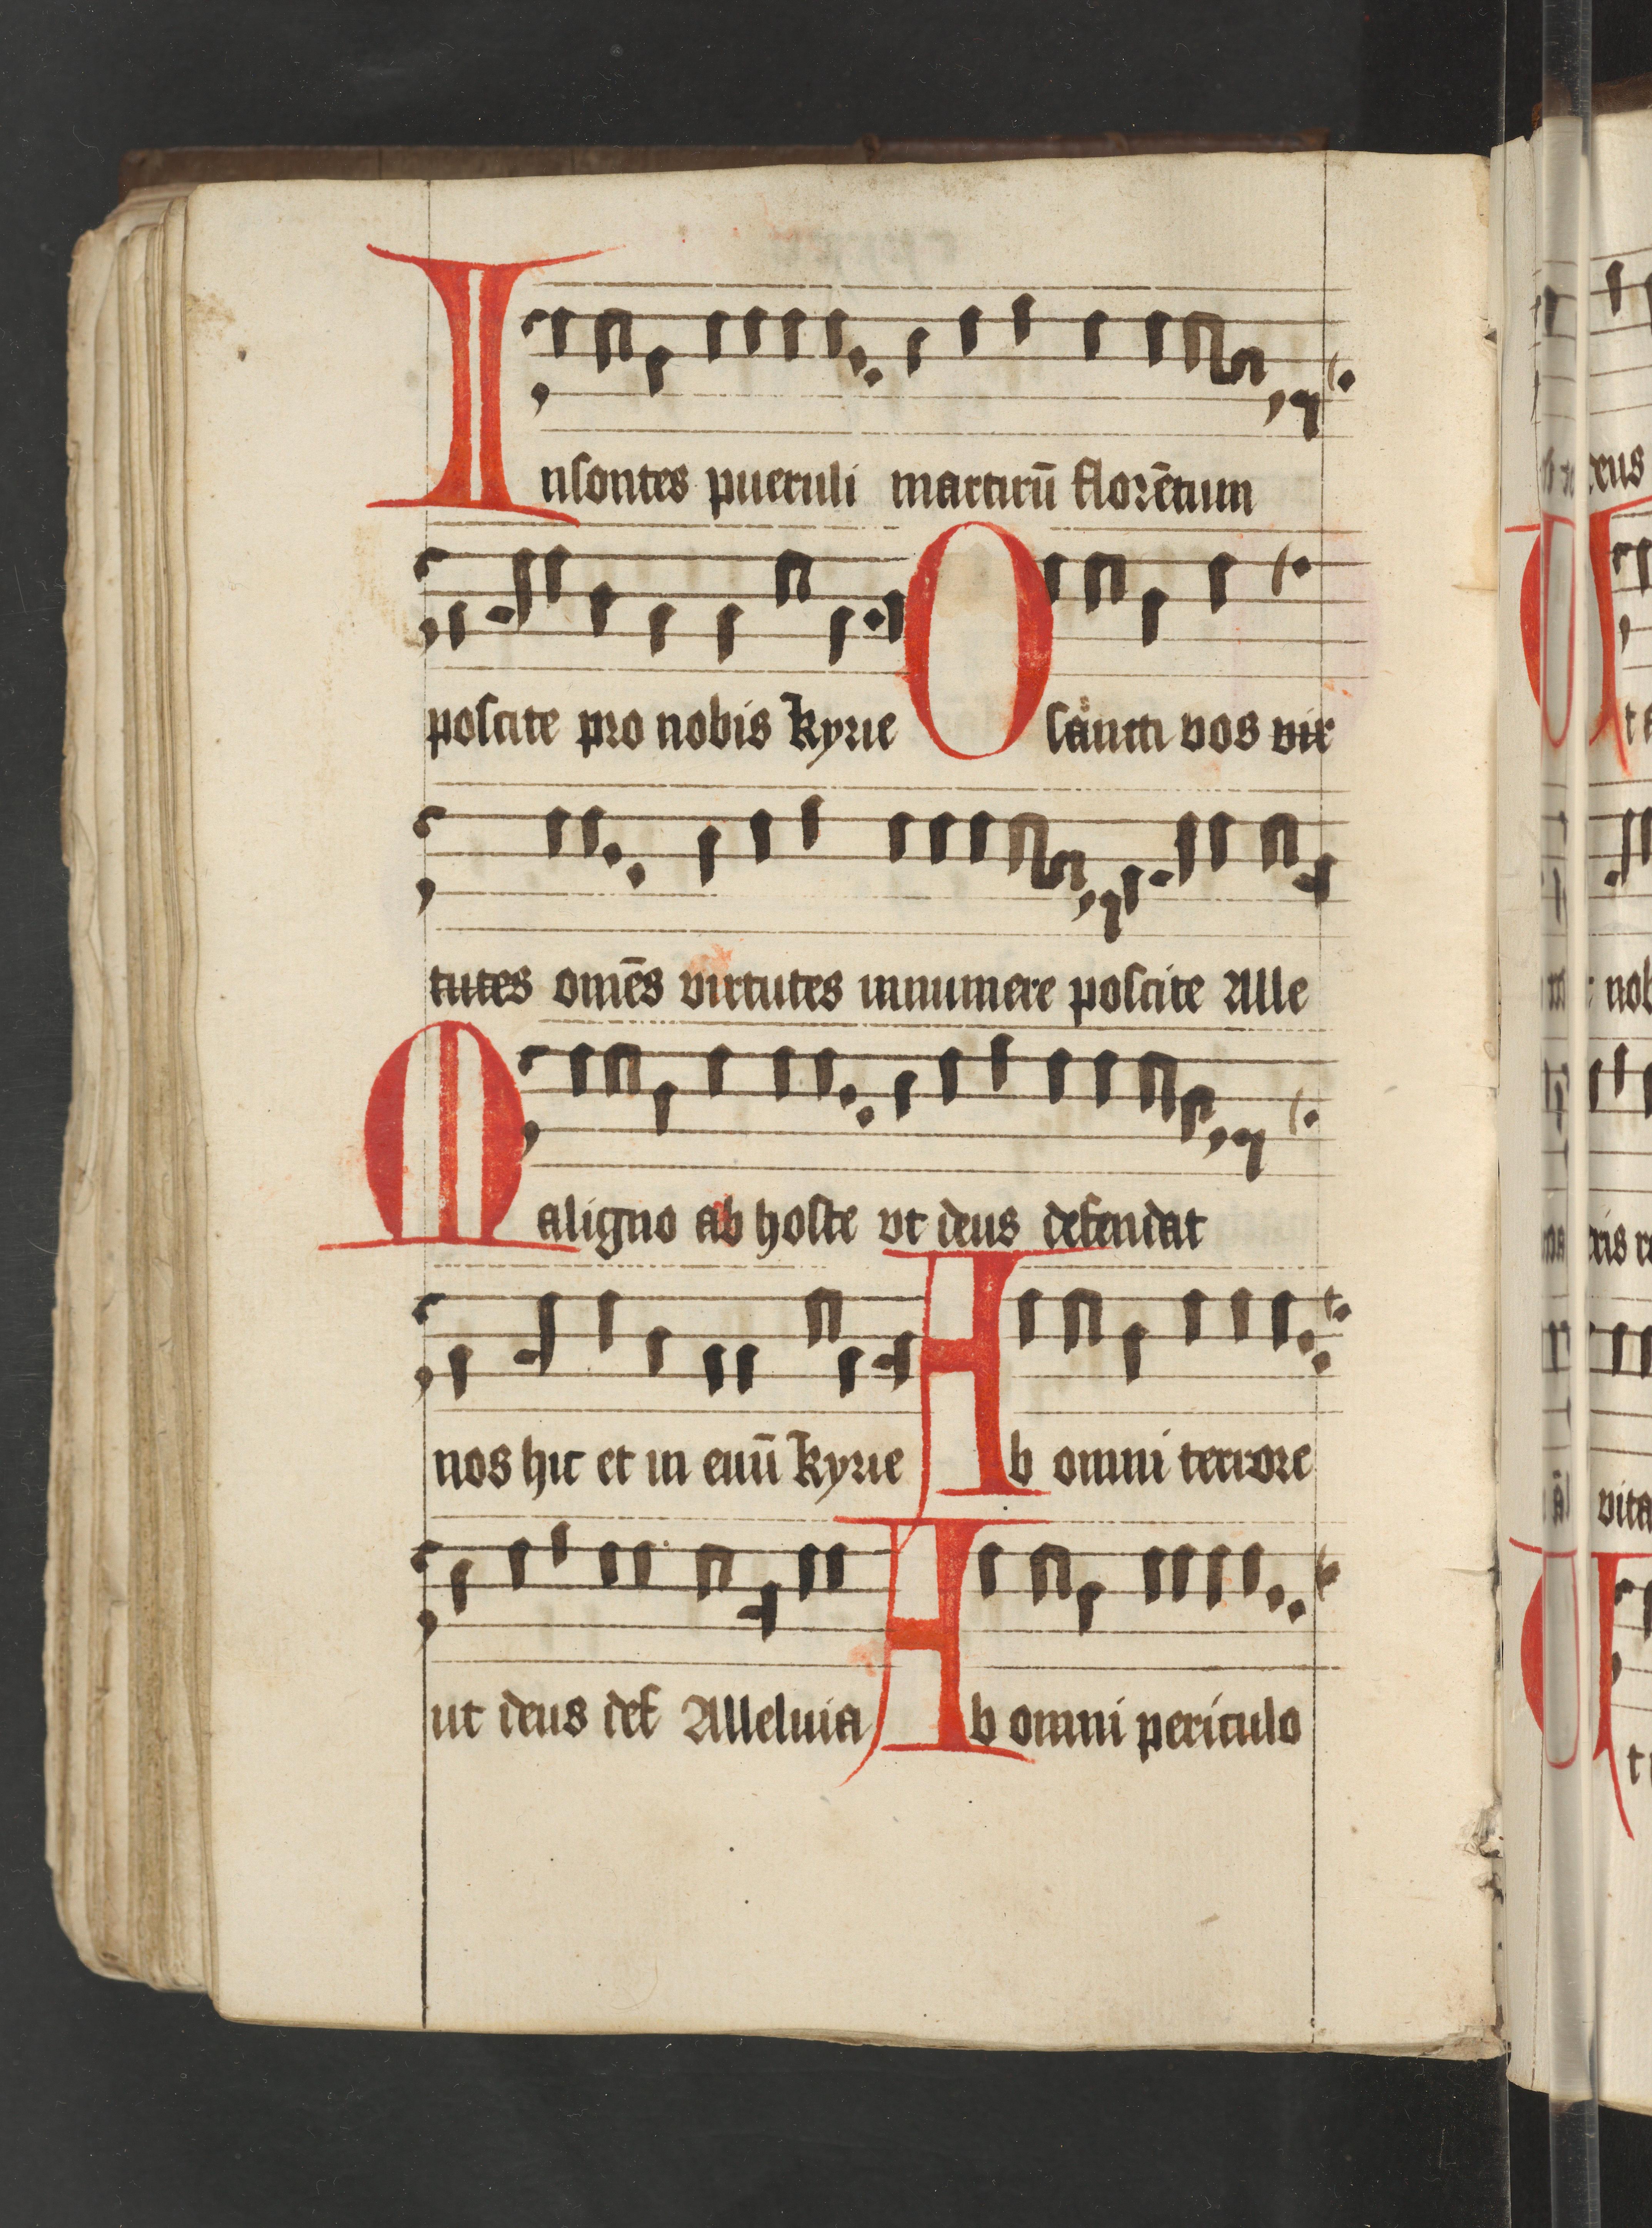 Insontes pueruli martirū florētum
poscite pro nobis kyrie O sancti vos vir
tutes om̄es virtutes innumere poscite Alle
Maligno ab hoste vt deus defendat
nos hic et in euū kyrie Ab omni terrore
ut deus def Alleluia Ab omni periculo